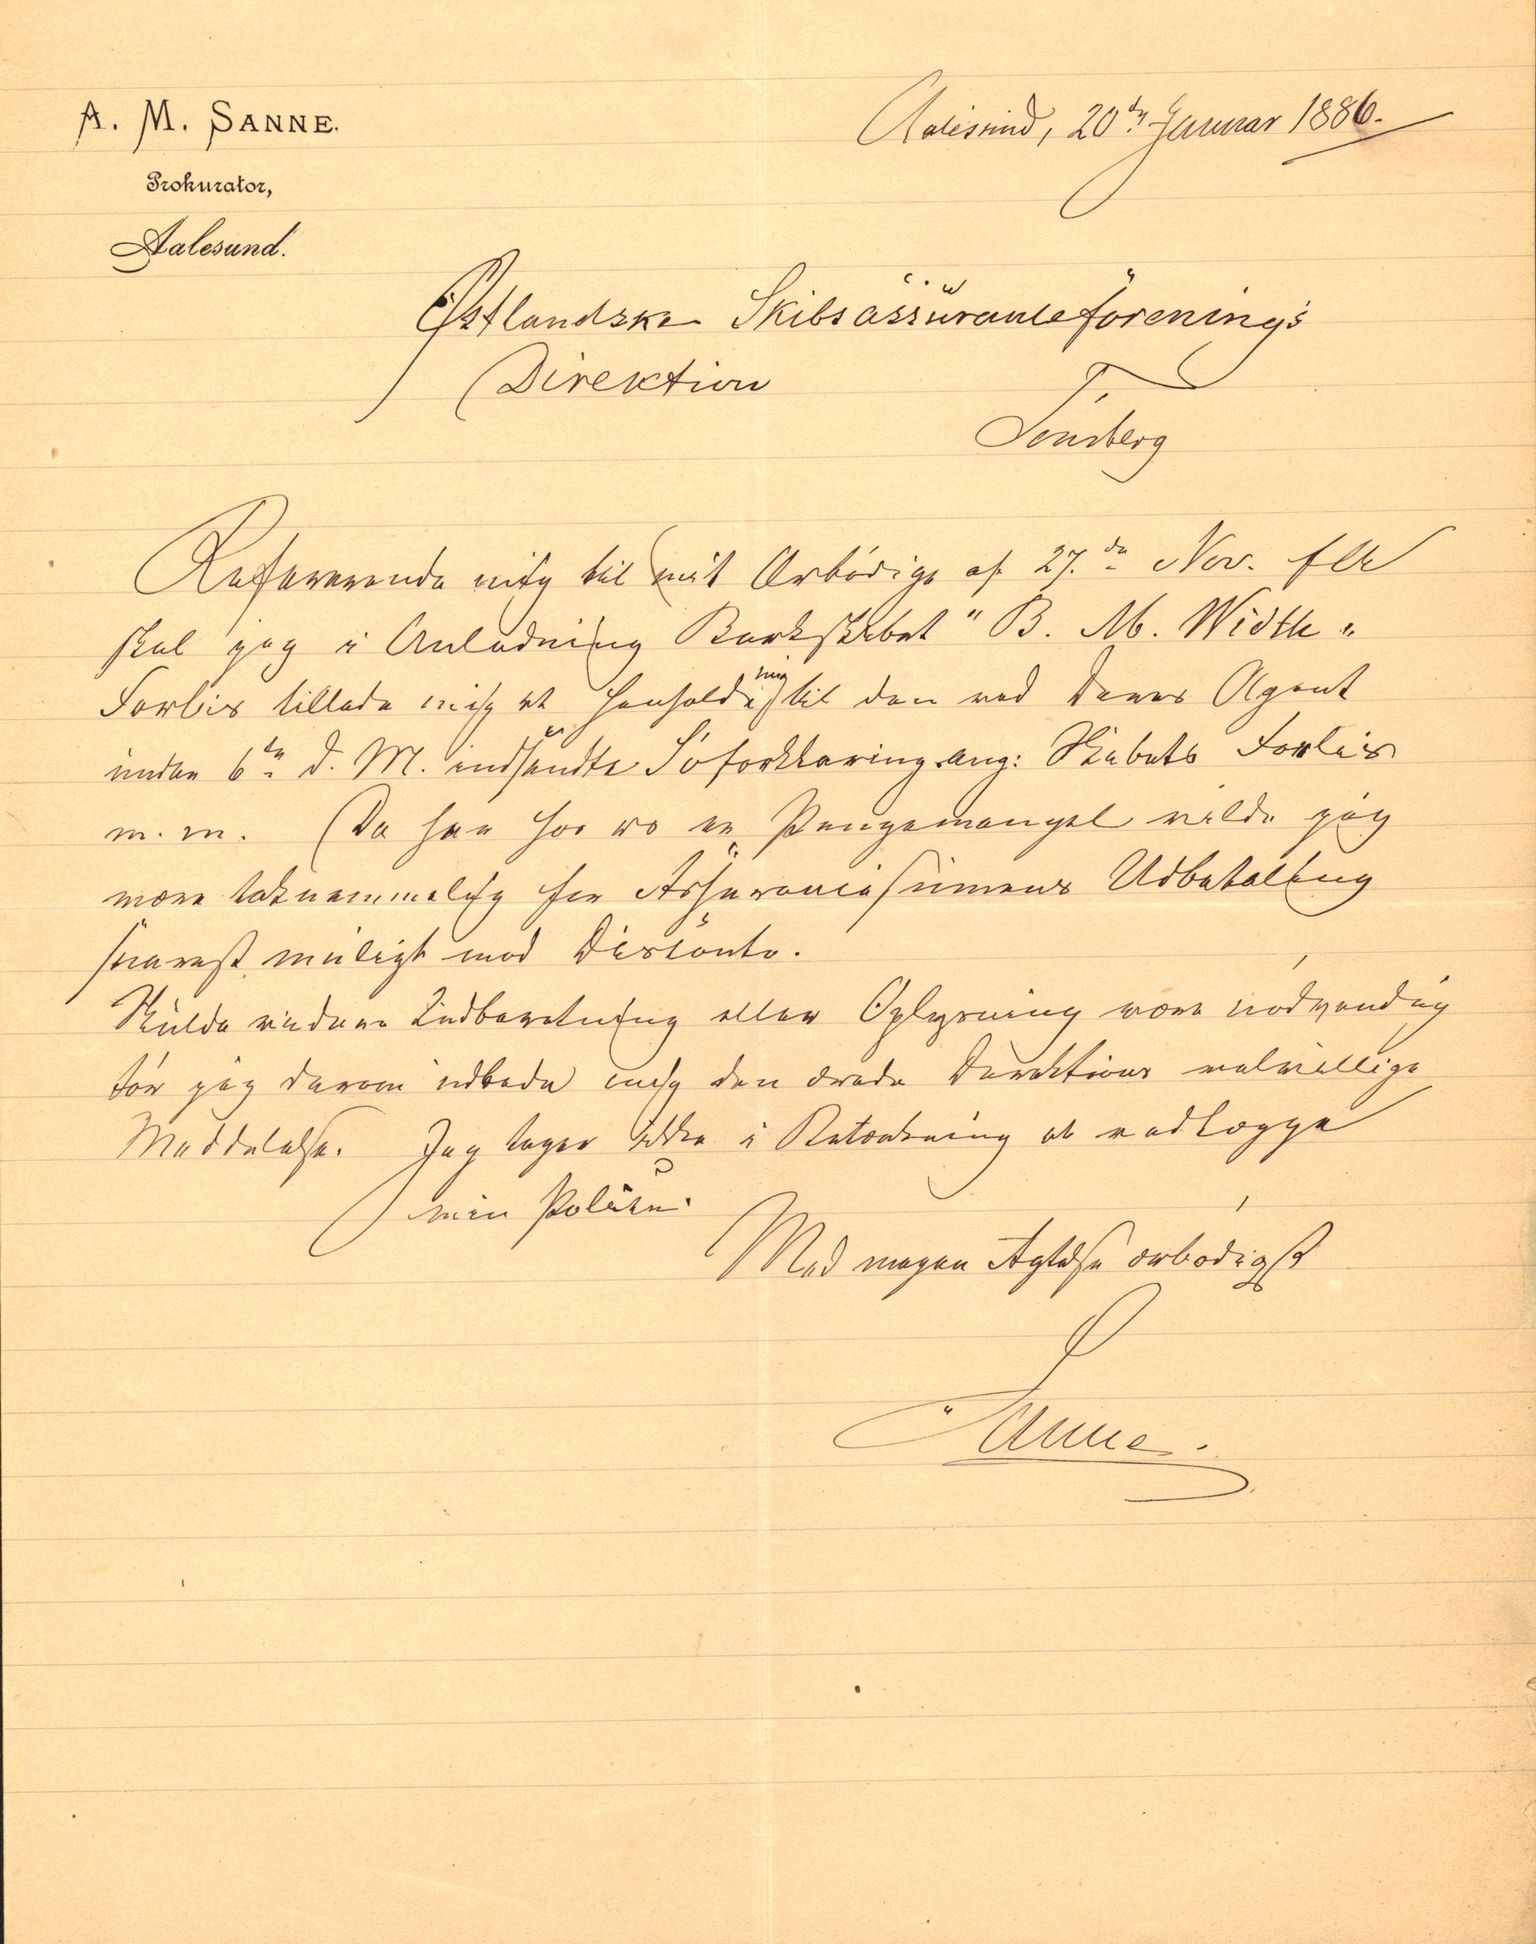 A. M. SANNE.
Prokurator,
Aalesund.
Aalesund, 20de Januar 1886.
Østlandske Skibsassuranceforening's
Direktion
Tönsberg
Refererende mig til mit Ærbödige af 27.de Nov. f Ar
skal jeg i Anledning Barkskibet "B. M. Width"s
Forlis tillade mig at henholde mig til den ved Deres Agent
under 6te d. M. indsendte Söforklaring ang: Skibets Forlis
m. m. Da her hos os er Pengemangel vilde jeg
være taknemmelig for Assurancesummens Udbetaling
snarest muligt mod Disconto.
Skulde videre Indberetning eller Oplysning være nödvendig
tör jeg derom udbede mig den ærede Direktions velvillige
Meddelelse. Jeg tager ikke i Betænkning at vedlægge
min Police.
Med megen Agtelse ærbödigst
Sanne.